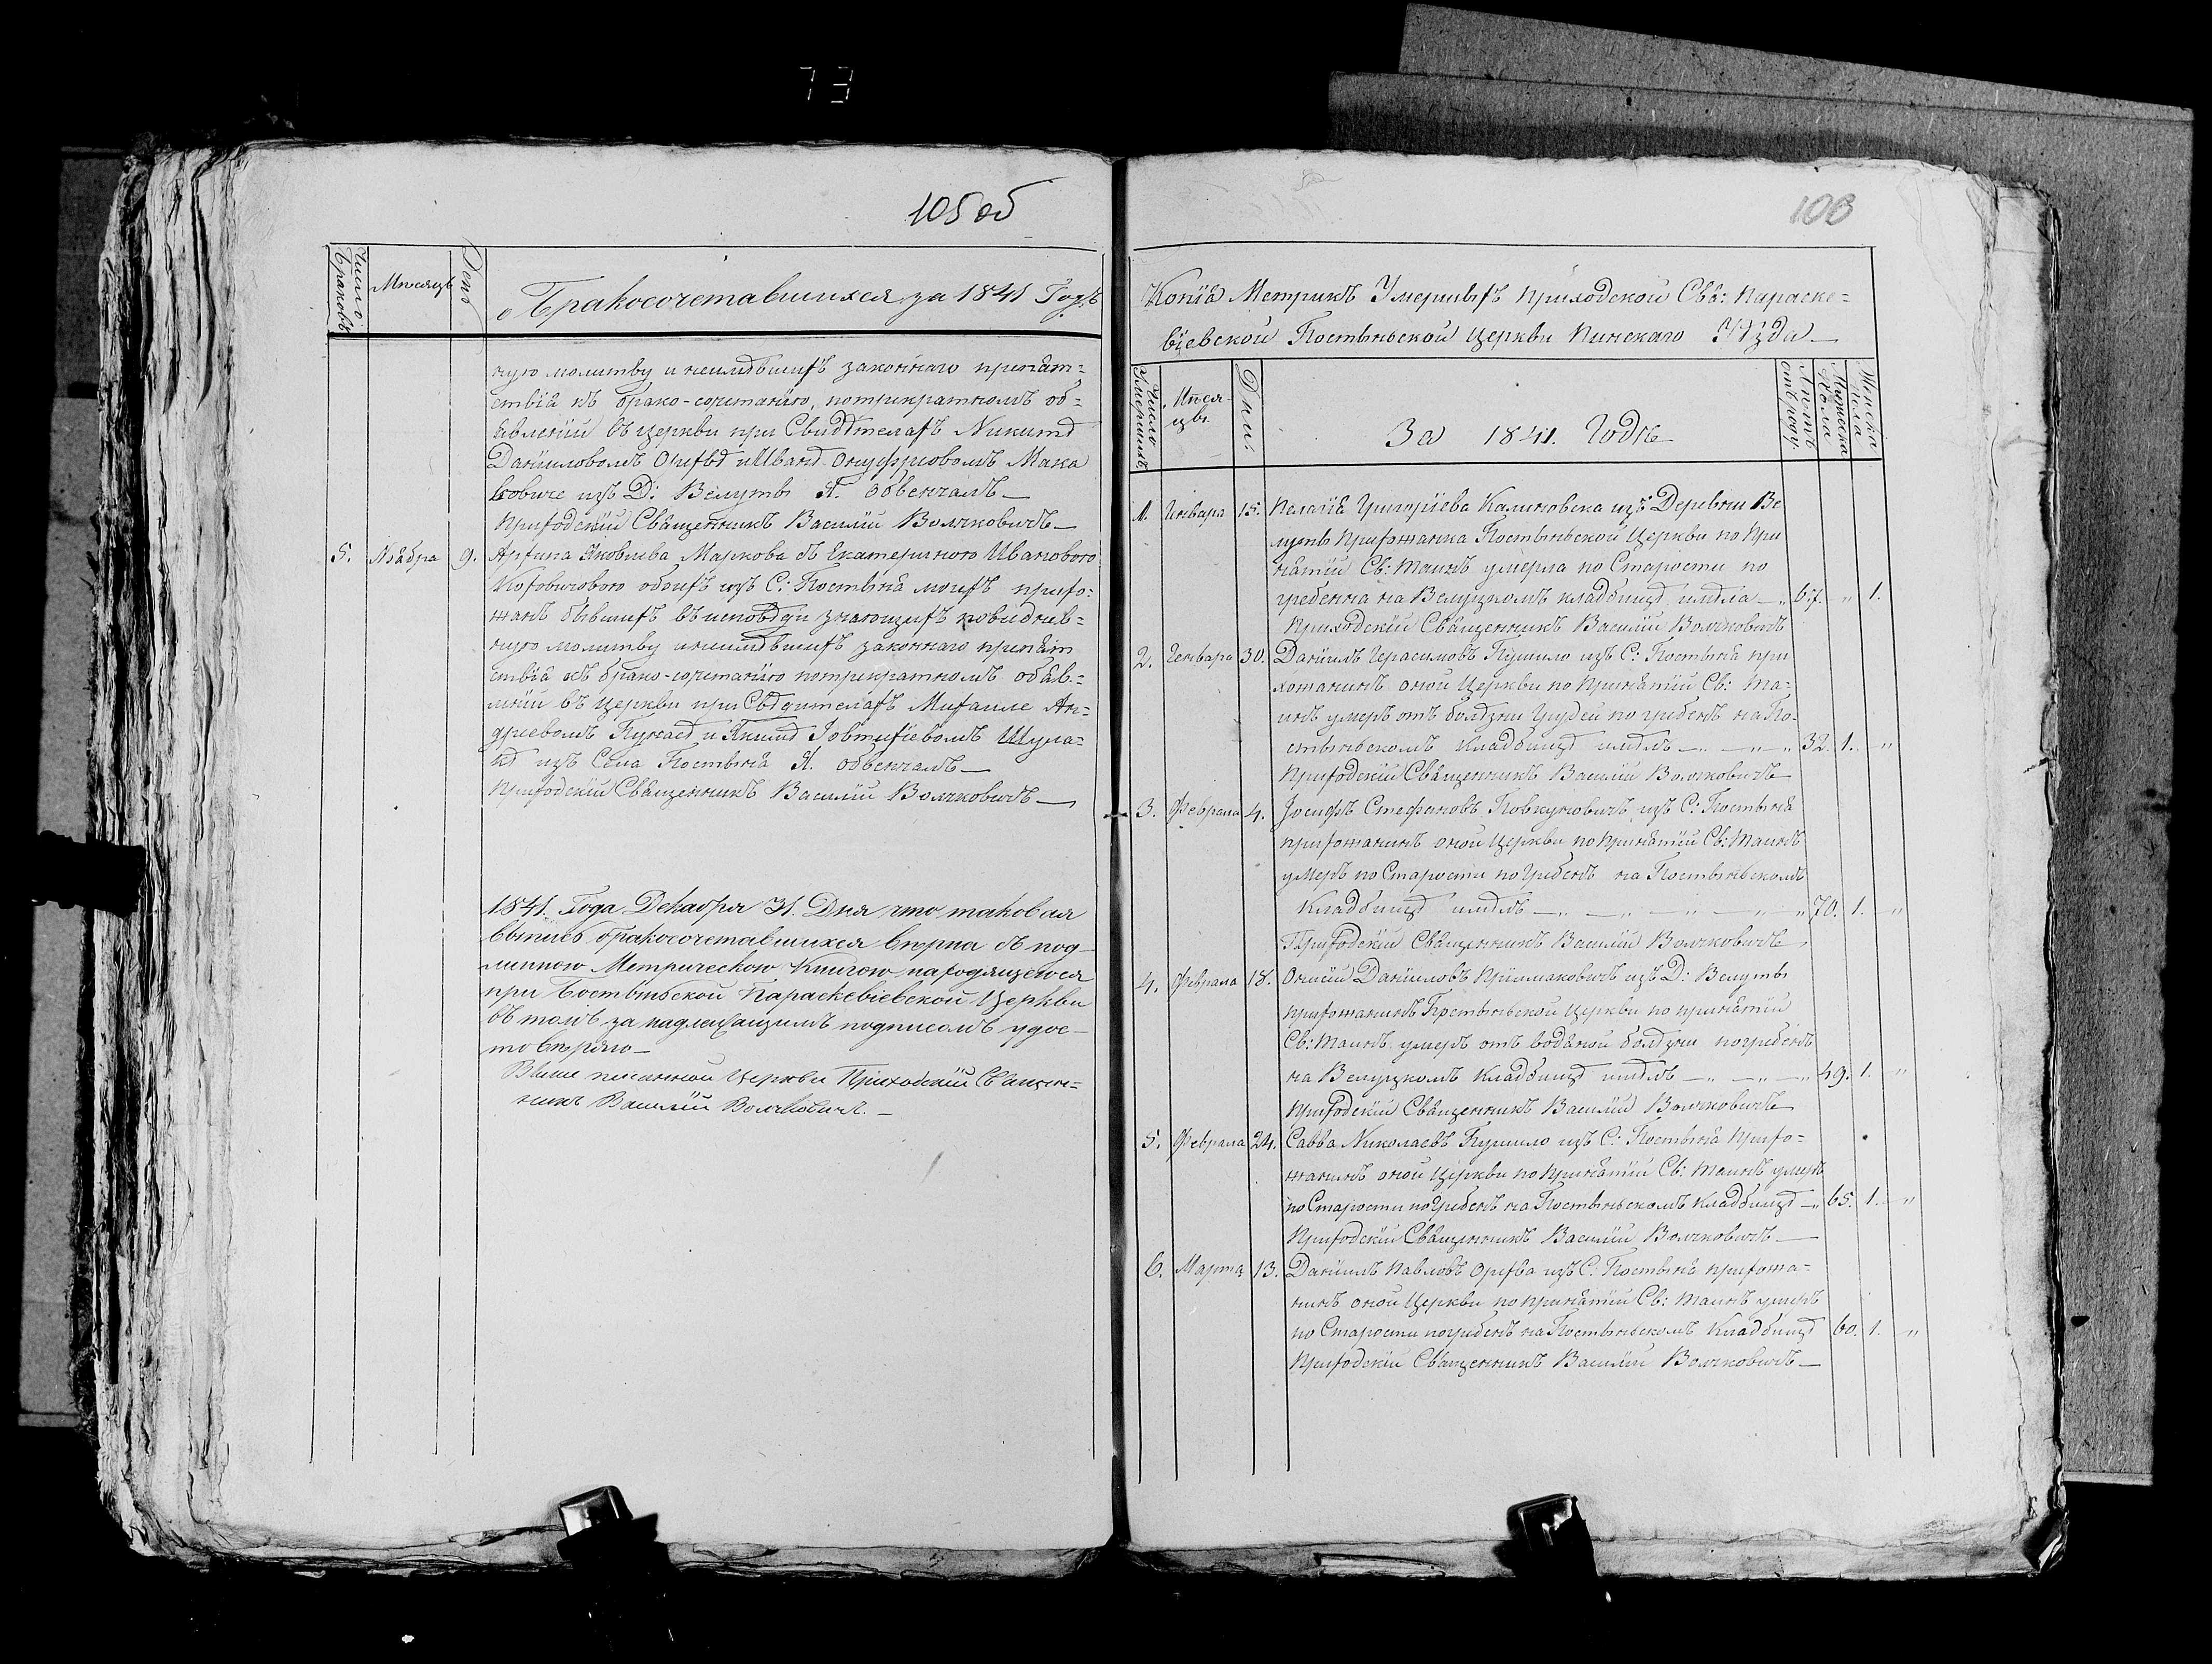 73
105 об
Число Браковъ
Мѣсяцъ
День
Бракосочетавшихся за 1841 Годъ
ную молитву и неимѣвшихъ законнаго препят=
ствія къ брако-сочетанію, потрикратномъ об=
явленіи въ церкви при Свидѣтеляхъ Никитѣ
Даниловомъ Орѣхвѣ и Иванѣ Онуфріовомъ Мака
ковиче изъ Д: Велуты Я. обвенчалъ —
Приходскій Священникъ Василій Волчковичъ —
5. Ноября 9. Яковлева Маркова съ Екатериною Ивановою
обоихъ изъ С: Постыня моихъ прихо=
жанъ бывшихъ въ исповѣди знающихъ повседнев=
ную молитву и неимѣвшихъ законнаго препят
ствія къ брако-сочетанію потрикратномъ обяв=
леніи въ церкви при Свдѣтеляхъ Михаиле Ан=
дреевомъ и Іовтифіевомъ Шула=
кѣ изъ Села Постыня Я. обвенчалъ —
Приходскій Священникъ Василій Волчковичъ —
1841. Года Декабря 31. Дня что таковая
выпись бракосочетавшихся верна съ под
линною Метрическою Книгою находящеюся
при Постыньской Параскевіевской Церкви
въ томъ за надлежащимъ подписомъ удос
товеряю —
Выше писанной Церкви Приходскій Священ=
никъ Василій Волчковичъ. —
106
Копія Метрикъ Умершыхъ Приходской Свя: Параске=
віевской Постыньской Церкви Пинскаго Уѣзда —
Число Умершихъ
Мѣся-
цы.
Дни.
За 1841. Годъ
Лѣтъ отъ роду.
Мужеска Пола
Женска Пола
1. Генваря 15. Пелагія Григоріева Калиновска изъ Деревни Ве
луты Прихожанка Постыньской Церкви по При
нятіи Св: Таинъ умерла по Старости по
гребенна на Велуцкомъ кладбищѣ имѣла — 67. " 1.
Приходскій Священникъ Василій Волчковичъ
2. Генваря 30. Даніилъ Герасимовъ Пушило изъ С: Постыня при
хожанинъ оной Церкви по Принятіи Св: Та=
инъ умеръ отъ болѣзни Грудей погребенъ на По-
стыньскомъ Кладбищѣ имѣлъ — " — " — " 32. 1. "
Приходскій Священникъ Василій Волчковичъ
3. Февраля 4. Іосифъ Стефановъ Ковкуновичъ изъ С: Постыня
прихожанинъ оной Церкви по Принятіи Св: Таинъ
умеръ по Старости погребенъ на Постыньскомъ
Кладбищѣ имѣлъ — " — " — " — " 70. 1. "
Приходскій Священникъ Василій Волчковичъ
4. Февраля 18. Данииловъ Пріймаковичъ изъ Д: Велуты
прихожанинъ Постыньской Церкви по принятіи
Св: Таинъ умеръ отъ водяной болѣзни погребенъ
на Велуцкомъ Кладбищѣ имѣлъ — " — " — " 49. 1. "
Приходскій Священникъ Василій Волчковичъ
5. Февраля 24. Савва Николаевъ Пушило изъ С: Постыня Прихо=
жанинъ оной Церкви по Принятіи Св: Таинъ умеръ
по Старости погребенъ на Постыньскомъ Кладбищѣ — 65. 1. "
Приходскій Священникъ Василій Волчковичъ —
6. Марта 13. Даниилъ Павловъ Орѣхва изъ С: Постыня прихожа=
нинъ оной Церкви по Принятіи Св: Таинъ умеръ
по Старости погребенъ на Постыньскомъ Кладбищѣ 60. 1. "
Приходскій Священникъ Василій Волчковичъ —